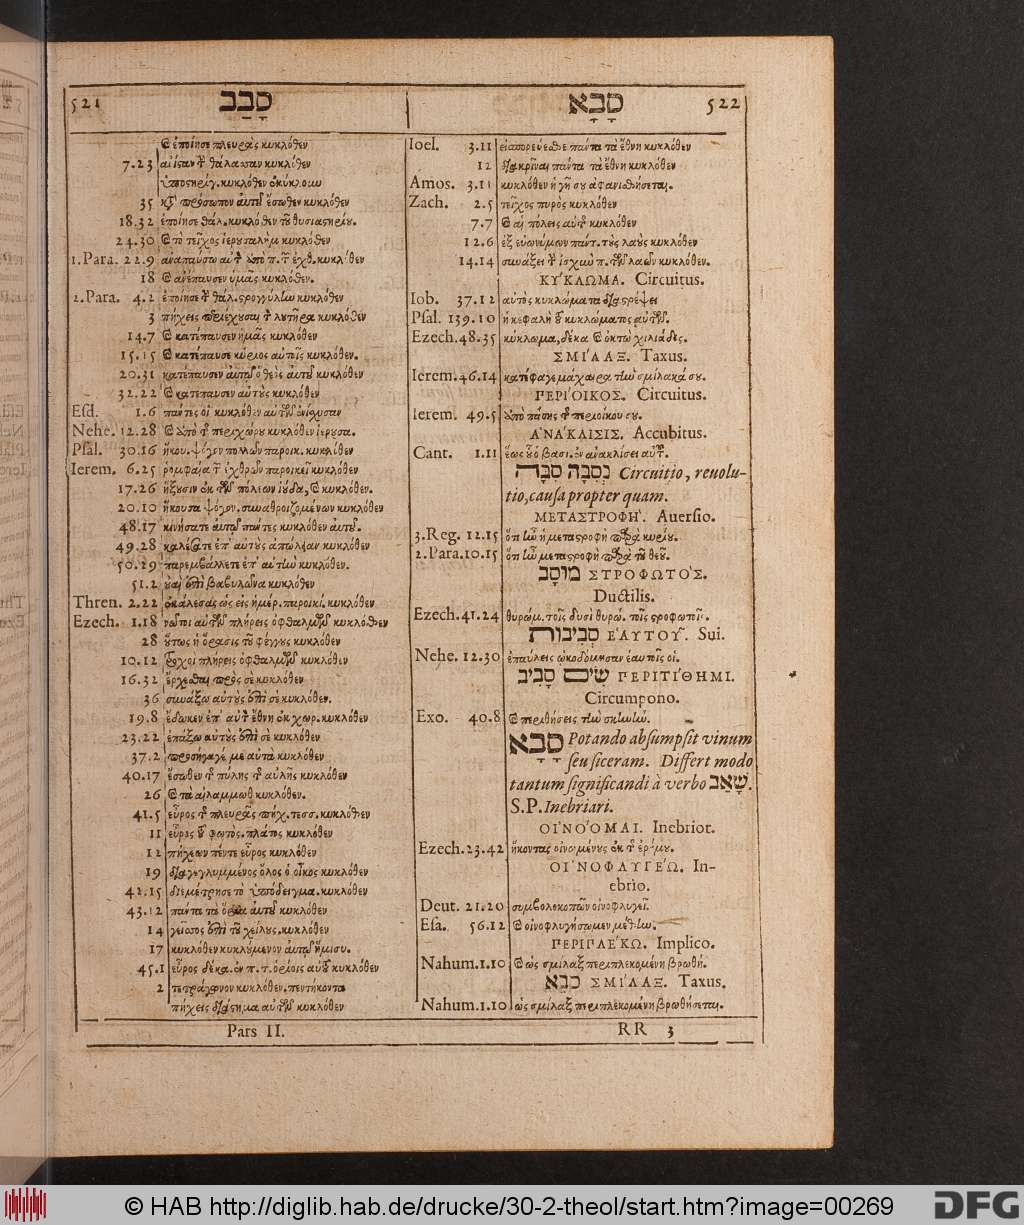 521 סָבַב
ἐποίησε πλευρὰς κυκλόθεν
7.23 κυκλόθεν
κυκλόθεν
35 πρόσωπον αὐτοῦ ἔσωθεν κυκλόθεν
18.32 ἐποίησε θάλ. κυκλόθεν τοῦ θυσιαστηρίου.
24.30 τὸ τεῖχος ἱερουσαλὴμ κυκλόθεν
1.Para. 22.9 κυκλόθεν
18 ἀνέπαυσεν ὑμᾶς κυκλόθεν.
2.Para. 4.2 ἐποίησε τ θάλ. στρογγύλων κυκλόθεν
3 πήχεις περιέχουσι τ λουτῆρα κυκλόθεν
14.7 κατέπαυσεν ἡμᾶς κυκλόθεν
15.15 κατέπαυσε κύριος αὐτοῖς κυκλόθεν.
20.31 κατέπαυσεν αὐτῷ ὁ θεὸς αὐτοῦ κυκλόθεν
32.22 κατέπαυσεν αὐτοὺς κυκλόθεν
Esd. 1.6 πάντες οἱ κυκλόθεν αὐτῶν ἐνίσχυσαν
Nehe. 12.28 ἀπὸ τ περιχώρου κυκλόθεν ἱερουσα.
Psal. 30.16 ἤκου. ψόγον πολλῶν παροικ. κυκλόθεν
Ierem. 6.25 ῥομφαία τ ἐχθρῶν παροικεῖ κυκλόθεν
17.26 ἥξουσιν ἐκ τῶν πόλεων ἰούδα, κυκλόθεν.
20.10 ἤκουσα ψόγον, συναθροιζομένων κυκλόθεν
48.17 κινήσατε αὐτῷ πάντες κυκλόθεν αὐτοῦ.
49.28 καλέσατε ἐπ' αὐτοὺς ἀπώλειαν κυκλόθεν
50.29 παρεμβάλλετε ἐπ' αὐτὴν κυκλόθεν.
51.2 οὐαὶ ἐπὶ βαβυλῶνα κυκλόθεν
Thren. 2.22 ἐκάλεσας ὡς εἰς ἡμέρ. παροικί. κυκλόθεν
Ezech. 1.18 νῶτοι αὐτῶν πλήρεις ὀφθαλμῶν κυκλόθεν
28 οὕτως ἡ ὅρασις τοῦ φέγγους κυκλόθεν
10.12 τροχοὶ πλήρεις ὀφθαλμῶν κυκλόθεν
16.32 ἔρχεσθαι πρὸς σὲ κυκλόθεν
36 συνάξω αὐτοὺς ἐπὶ σὲ κυκλόθεν.
19.8 ἔδωκεν ἐπ' αὐτ ἔθνη ἐκ χωρ. κυκλόθεν
23.22 ἐπάξω αὐτοὺς ἐπὶ σὲ κυκλόθεν
37.2 προσήγαγέ με αὐτὰ κυκλόθεν
40.17 ἔσωθεν τ πύλης τ αὐλῆς κυκλόθεν
26 τὰ αἰλαμμωθ κυκλόθεν.
41.5 εὖρος τ πλευρᾶς πήχ. τεσσ. κυκλόθεν
11 εὖρος τ φωτὸς. πλάτος κυκλόθεν
12 πήχεων πέντε εὖρος κυκλόθεν
19 διαγεγλυμμένος ὅλος ὁ οἶκος κυκλόθεν
42.15 διεμέτρησε τὸ ὑπόδειγμα. κυκλόθεν
43.12 πάντα τὰ ὅρια αὐτοῦ κυκλόθεν
14 γεῖσος ἐπὶ τοῦ χείλους. κυκλόθεν
17 κυκλόθεν κυκλούμενον αὐτῷ ἥμισυ.
45.1 εὖρος δέκα. κυκλόθεν
2 τετράγωνον κυκλόθεν. πεντήκοντα
πήχεις διάστημα αὐτῶν κυκλόθεν
Pars II.
סָבָא 522
Ioel. 3.11 εἰσπορεύεσθε πάντα τὰ ἔθνη κυκλόθεν
12 διακρῖναι πάντα τὰ ἔθνη κυκλόθεν
Amos. 3.11 κυκλόθεν ἡ γῆ σου ἀφανισθήσεται.
Zach. 2.5 τεῖχος πυρὸς κυκλόθεν
7.7 αἱ πόλεις αὐτ κυκλόθεν
12.6 ἐξ εὐωνύμων πάντ. τοὺς λαοὺς κυκλόθεν
14.14 συνάξει τ ἰσχὺν π. τῶν λαῶν κυκλόθεν.
ΚΥΚΛΩΜΑ. Circuitus.
Iob. 37.12 αὐτὸς κυκλώματα διαστρέψει
Psal. 139.10 ἡ κεφαλὴ τ κυκλώματος αὐτῶν.
Ezech. 48.35 κύκλωμα, δέκα ὀκτὼ χιλιάδες.
ΣΜΙΛΑΞ. Taxus.
Ierem. 46.14 κατέφαγε μάχαιρα τὴν σμίλακά σου.
ΠΕΡΙΟΙΚΟΣ. Circuitus.
Ierem. 49.5 ἀπὸ πάσης τ περιοίκου σου.
ΑΝΑΚΛΙΣΙΣ. Accubitus.
Cant. 1.11 ἕως οὗ ὁ βασι. ἐν ἀνακλίσει αὐτ.
נְסִבָּה סִבָּה Circuitio, reuolu-
tio, causa propter quam.
ΜΕΤΑΣΤΡΟΦΗ'. Auersio.
3.Reg. 12.15 ὅτι ἦν ἡ μεταστροφὴ παρὰ κυρίου.
2.Para. 10.15 ὅτι ἦν μεταστροφὴ παρὰ τοῦ θεοῦ.
מוּסָב ΣΤΡΟΦΩΤΟ'Σ.
Ductilis.
Ezech. 41.24 θυρώμ. τοῖς δυσὶ θυρώ. τοῖς στροφωτοῖς.
סְבִיבוֹת ΕΑΥΤΟΥ~. Sui.
Nehe. 12.30 ἐπαύλεις ᾠκοδόμησαν ἑαυτοῖς οἱ.
שִׂים סָבִיב ΠΕΡΙΤΙΘΗΜΙ.
Circumpono.
Exo. 40.8 περιθήσεις τὴν σκηνήν.
סָבָא Potando absumpsit vinum
seu siceram. Differt modo
tantum significandi à verbo שָׁאַב.
S.P. Inebriari.
ΟΙΝΟΌΜΑΙ. Inebrior.
Ezech. 23.42 ἥκοντας οἰνωμένους ἐκ τ ἐρήμου.
ΟΙΝΟΦΛΥΓΕΏ. In-
ebrio.
Deut. 21.20 συμβολοκοπῶν οἰνοφλυγεῖ.
Esa. 56.12 οἰνοφλυγήσωμεν μέθην.
ΠΕΡΙΠΛΕΚΩ. Implico.
Nahum. 1.10 ὡς σμίλαξ περιπλεκομένη βρωθή.
סָבָא ΣΜΙΛΑΞ. Taxus.
Nahum. 1.10 ὡς σμίλαξ περιπλεκομένη βρωθήσεται.
RR 3
© HAB http://diglib.hab.de/drucke/30-2-theol/start.htm?image=00269
DFG